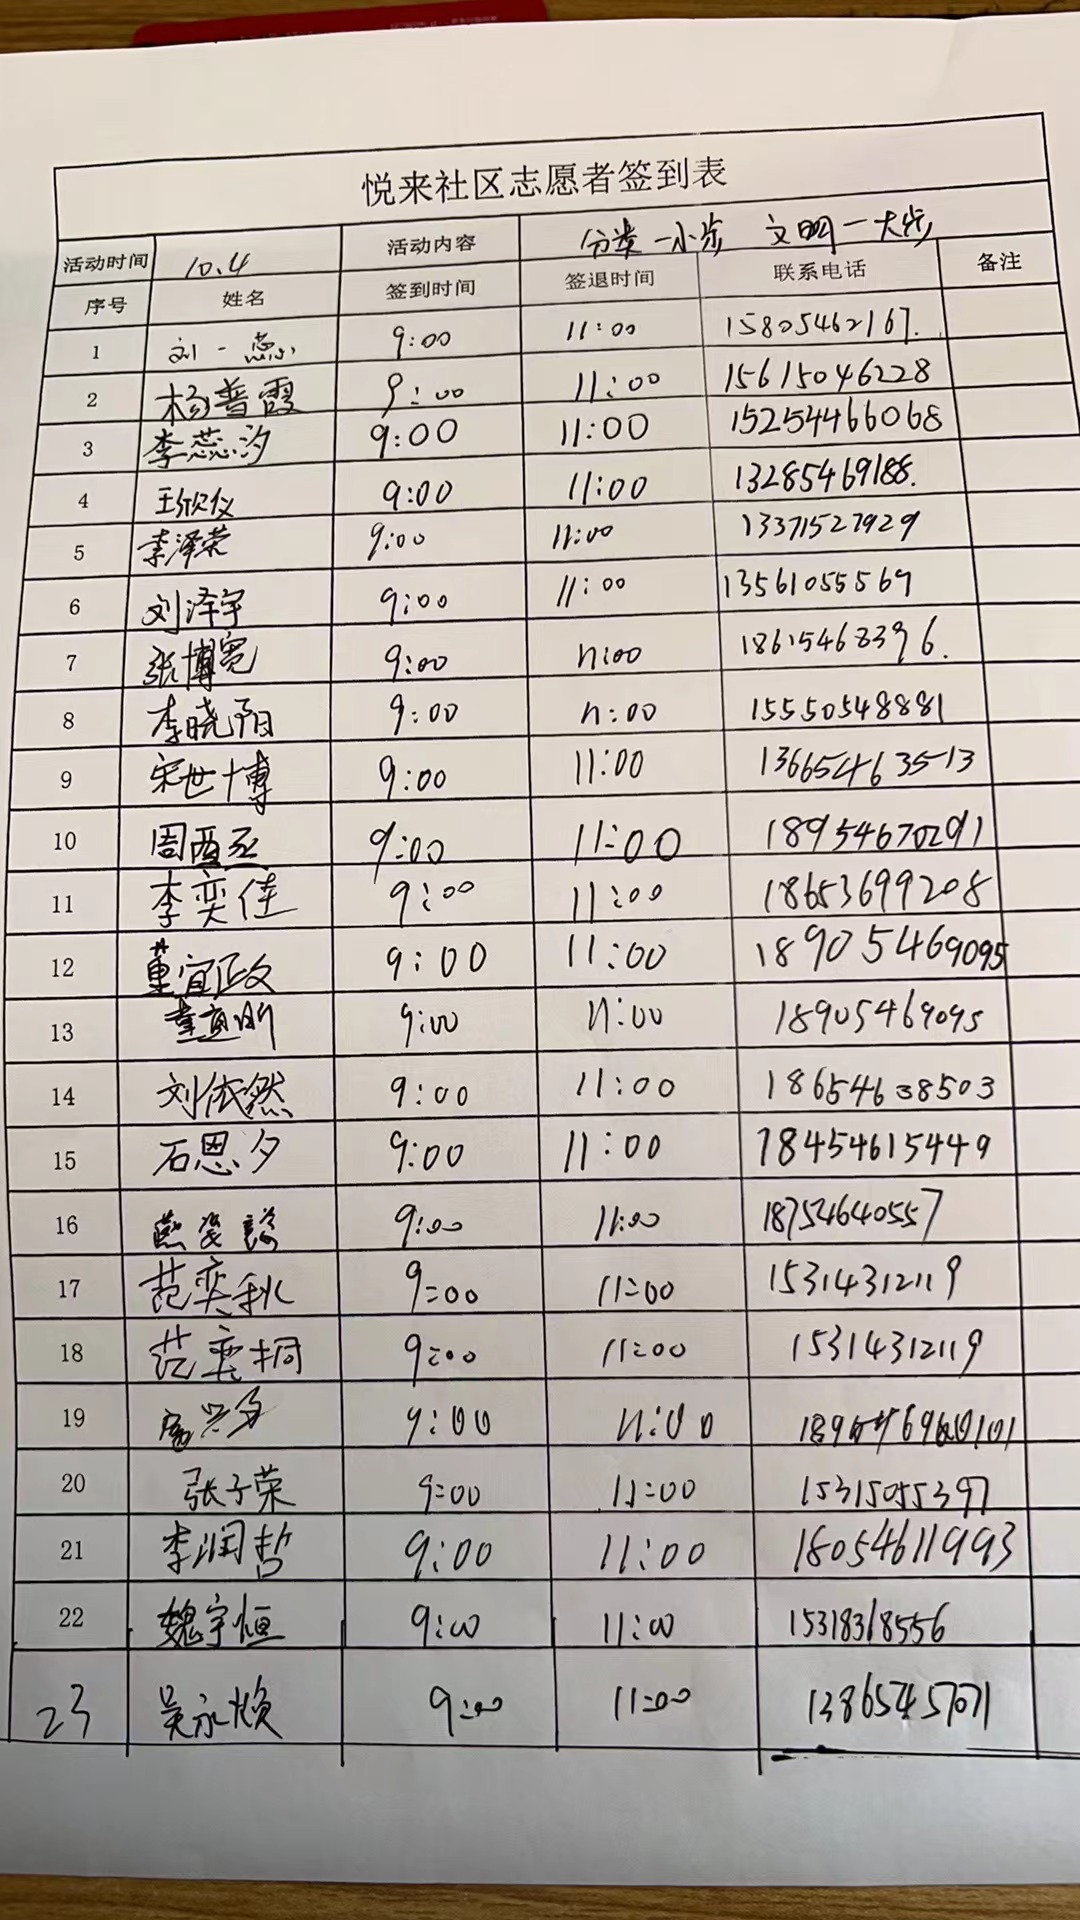 悦来社区志愿者签到表
活动时间 10.4 活动内容 分类一小步 文明一大步
序号 姓名 签到时间 签退时间 联系电话 备注
1 刘一蕊 9:00 11:00 15805462167.
2 杨普霞 9:00 11:00 15615046228
3 李蕊汐 9:00 11:00 15254466068
4 王欣仪 9:00 11:00 13285469188.
5 李泽荣 9:00 11:00 13371527929
6 刘泽宇 9:00 11:00 13561055569
7 张博宽 9:00 11:00 18615468396.
8 李晓阳 9:00 11:00 15550548881
9 宋世博 9:00 11:00 13665463513
10 周 9:00 11:00 18954670291
11 李奕佳 9:00 11:00 18653699208
12 董宜 9:00 11:00 18905469095
13 9:00 11:00 18905469095
14 刘依然 9:00 11:00 18654638503
15 石恩夕 9:00 11:00 18454615449
16 9:00 11:00 18754640557
17 范奕秋 9:00 11:00 15314312119
18 范奕桐 9:00 11:00 15314312119
19 9:00 11:00
20 张子荣 9:00 11:00 15315055397
21 李润哲 9:00 11:00 18054611993
22 魏宇恒 9:00 11:00 15318318556
23 吴永焕 9:00 11:00 13865457071